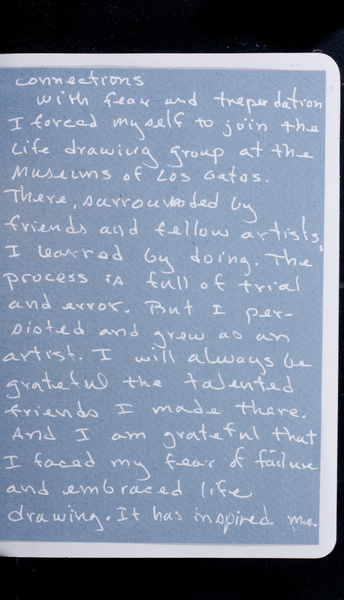 connections
with fear and treperdation
I forced myself to join the
Life drawing group at the
Museums of Los Gatos.
There, surrounded by
friends and fellow artists,
I learned by doing. The
process is full of trial
and error. But I per-
sisted and grew as an
artist. I will always be
grateful the talented
friends I made there.
And I am grateful that
I faced my fear of failure
and embraced life
drawing. It has inspired me.